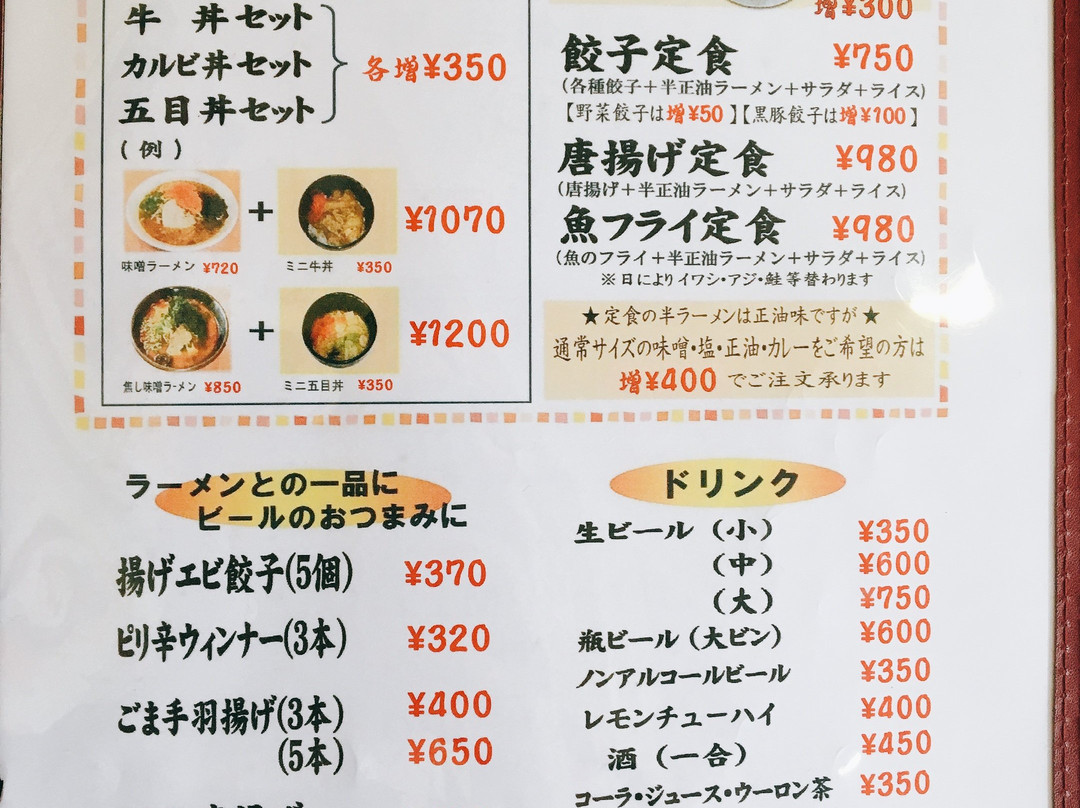 牛丼セット
カルビ丼セット
五目丼セット
各増¥350
(例)
+
¥1070
味噌ラーメン ¥720
ミニ牛丼 ¥350
+
¥1200
焦し味噌ラーメン ¥850
ミニ五目丼 ¥350
増¥300
餃子定食 ¥750
(各種餃子+半正油ラーメン+サラダ+ライス)
【野菜餃子は増¥50】【黒豚餃子は増¥100】
唐揚げ定食 ¥980
(唐揚げ+半正油ラーメン+サラダ+ライス)
魚フライ定食 ¥980
(魚のフライ+半正油ラーメン+サラダ+ライス)
※日によりイワシ・アジ・鮭等替わります
★定食の半ラーメンは正油味ですが★
通常サイズの味噌・塩・正油・カレーをご希望の方は
増¥400でご注文承ります
ラーメンとの一品に
ビールのおつまみに
揚げエビ餃子(5個) ¥370
ピリ辛ウィンナー(3本) ¥320
ごま手羽揚げ(3本) ¥400
(5本) ¥650
ドリンク
生ビール(小) ¥350
(中) ¥600
(大) ¥750
瓶ビール(大ビン) ¥600
ノンアルコールビール ¥350
レモンチューハイ ¥400
酒(一合) ¥450
コーラ・ジュース・ウーロン茶 ¥350